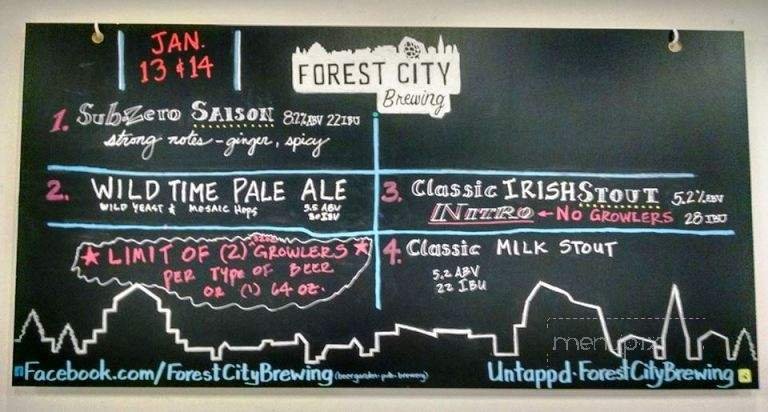 JAN.
13 & 14
FOREST CITY
Brewing
1. Sub-Zero SAISON 8.2% ABV 22 IBU
strong notes - ginger, spicy
2. WILD TIME PALE ALE
WILD YEAST & MOSAIC HOPS
5.5 ABV
30 IBU
3. Classic IRISH STOUT 5.2% ABV
NITRO ← NO GROWLERS 28 IBU
★ LIMIT OF (2) GROWLERS ★
PER TYPE OF BEER
OR (1) 64 OZ.
4. Classic MILK STOUT
5.2 ABV
22 IBU
menupix
Facebook.com/ForestCityBrewing (beergarden-pub-brewery)
Untappd-ForestCityBrewing